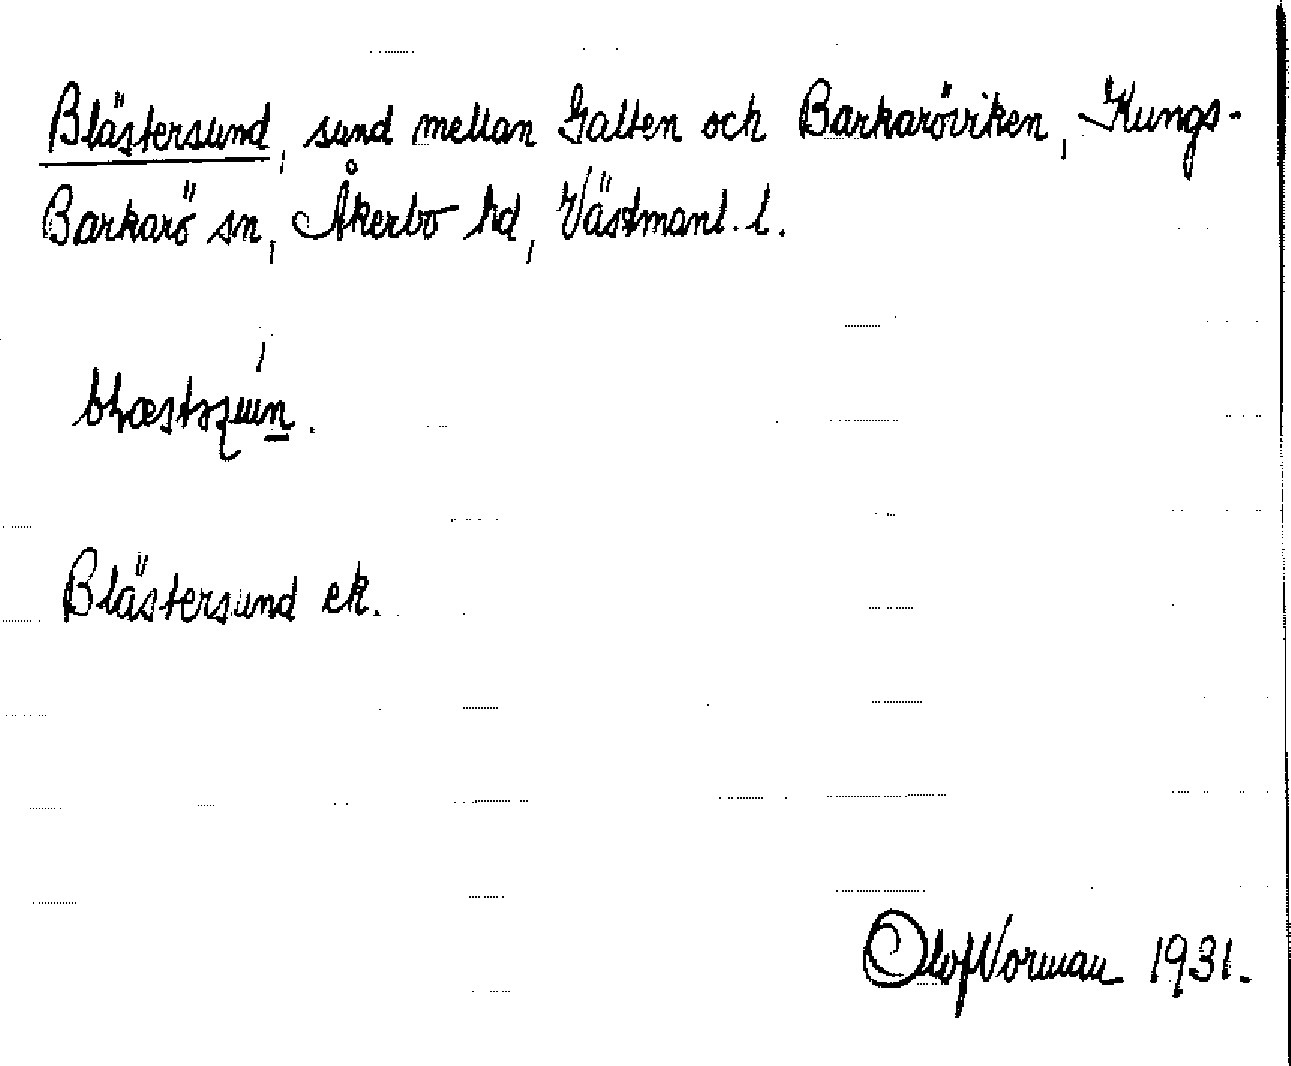 Blästersund, sund mellan Galten och Barkaröviken, Kungs-
Barkarö sn, Åkerbo hd, Västmanl. l.
Blästersund ek.
Olof Norman 1931.